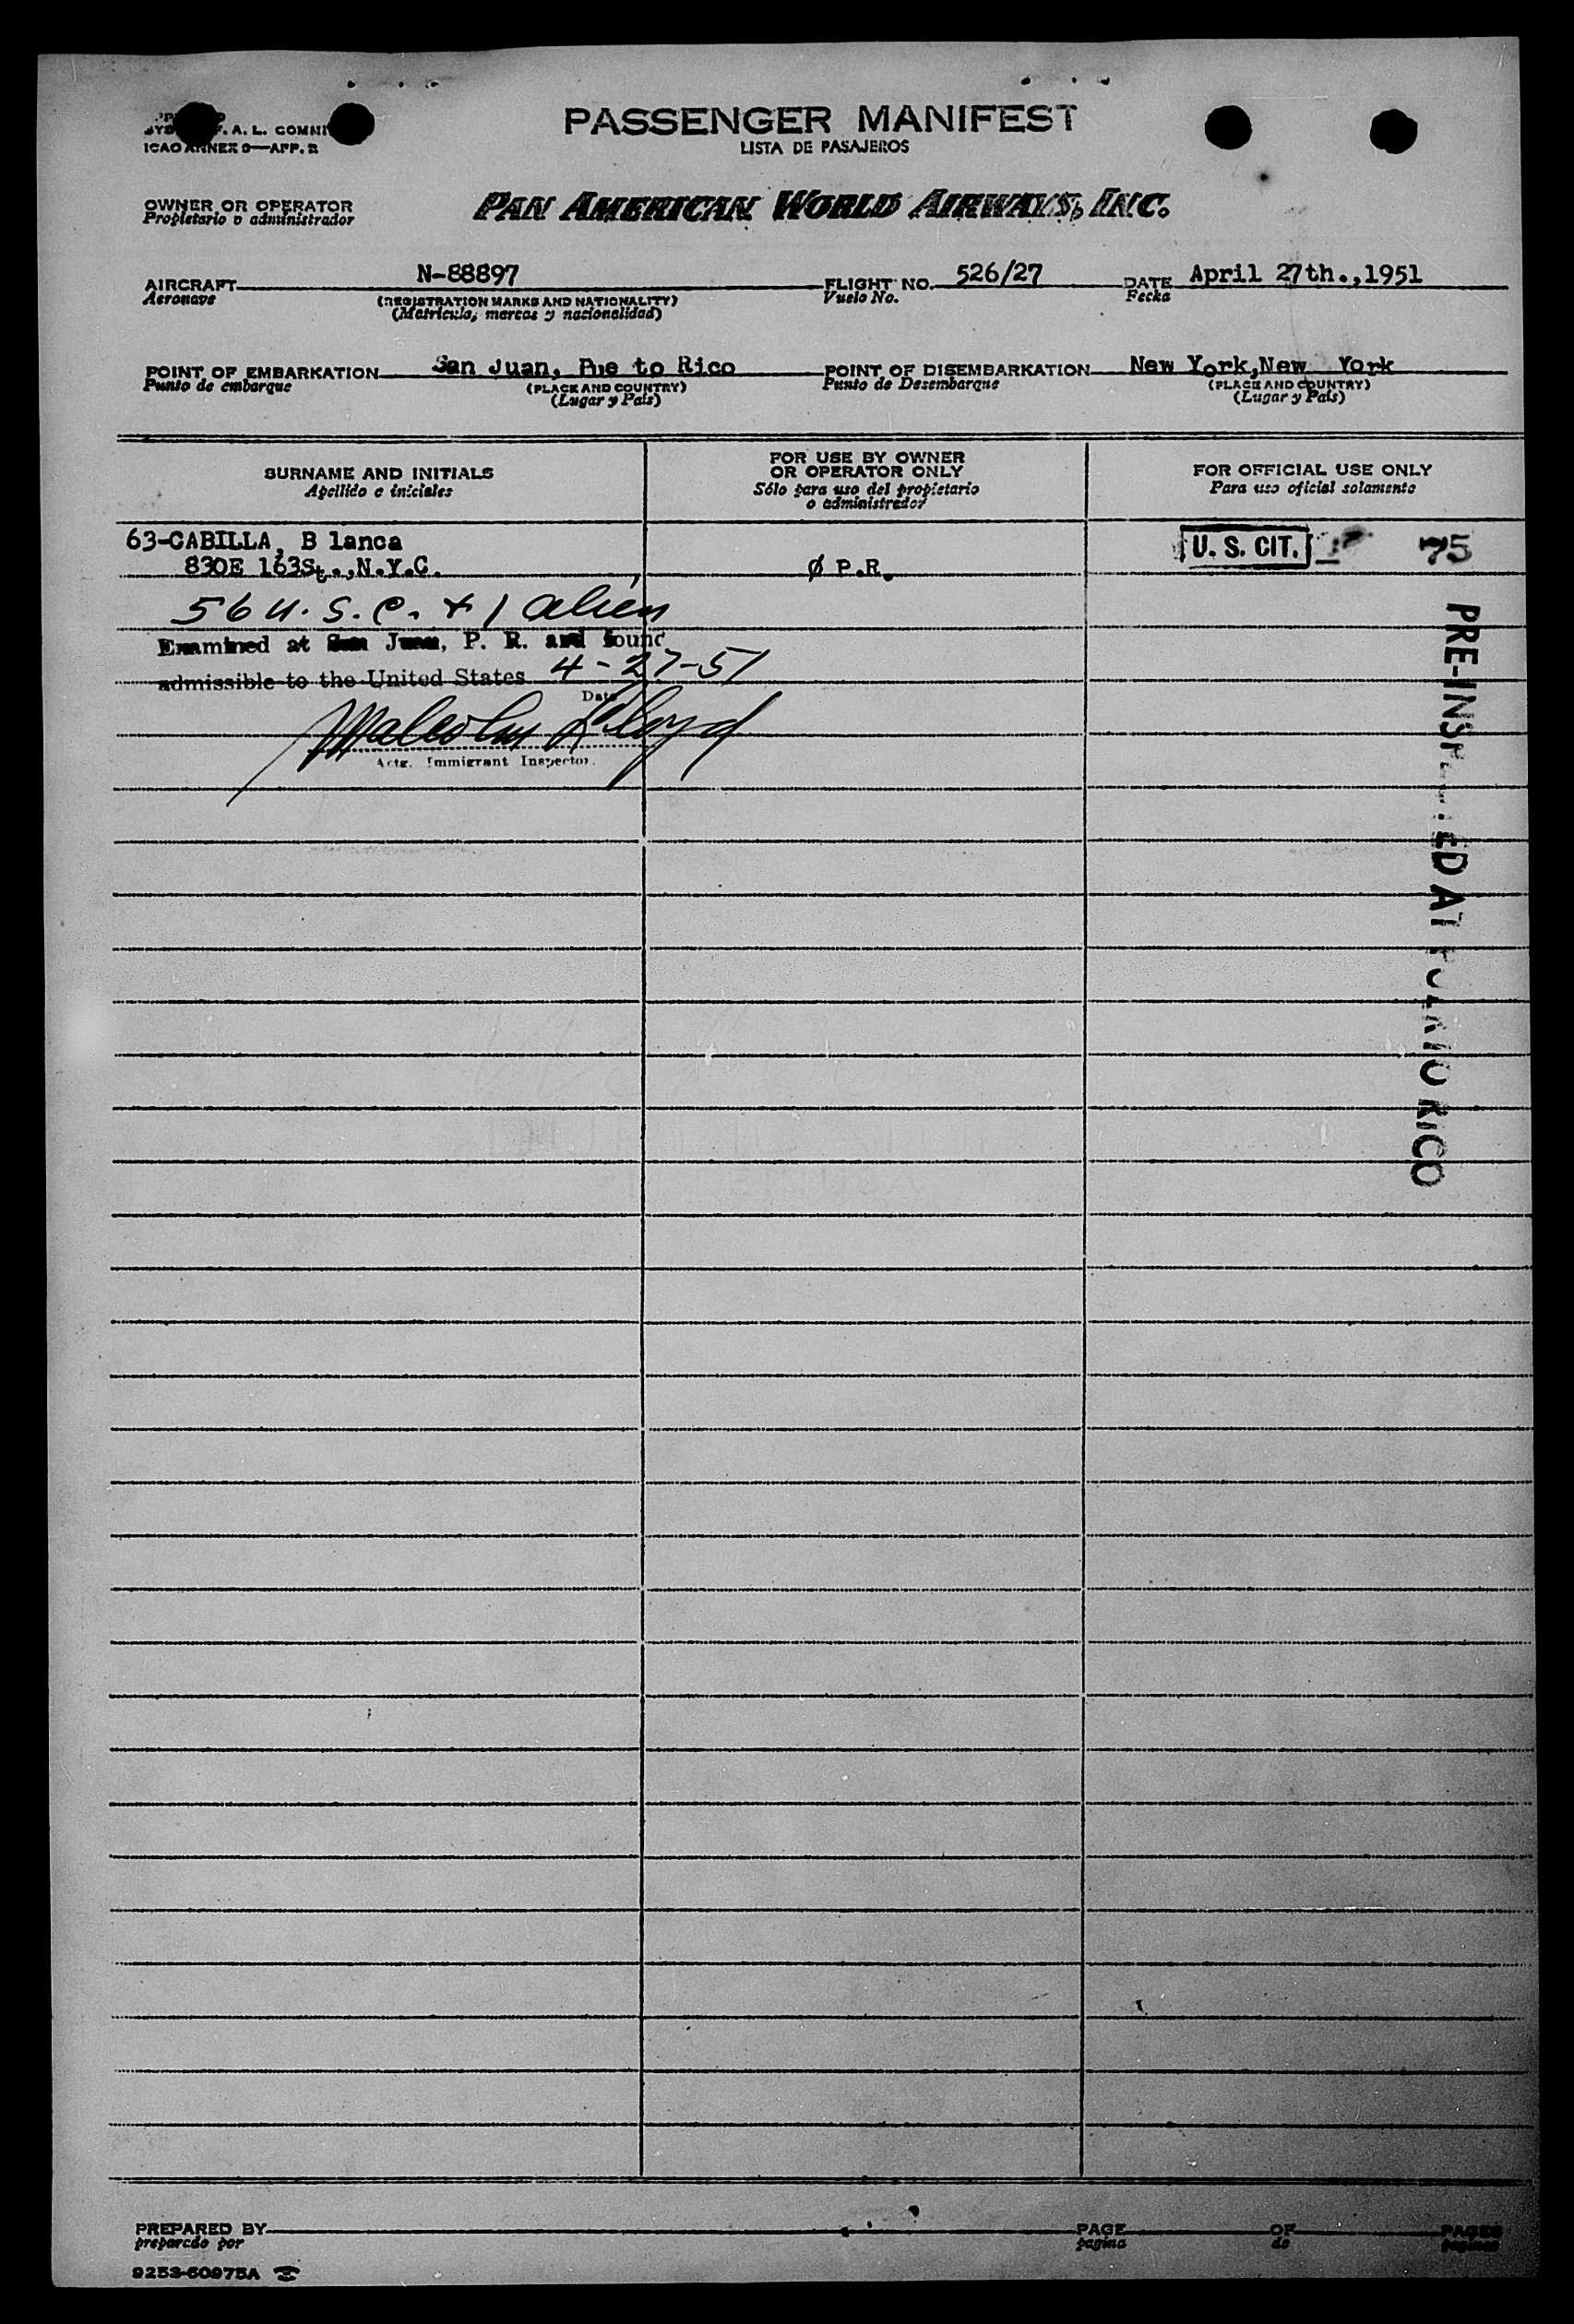 F. A. L. COMMI
ICAO ANNEX 9—APP. 2
PASSENGER MANIFEST
LISTA DE PASAJEROS
OWNER OR OPERATOR
Propietario o administrador
PAN AMERICAN WORLD AIRWAYS, INC.
AIRCRAFT N-88897 FLIGHT NO. 526/27 DATE April 27th.,1951
Aeronave (REGISTRATION MARKS AND NATIONALITY) Vuelo No. Fecha
(Matrícula, marcas y nacionalidad)
POINT OF EMBARKATION San Juan, Pue to Rico POINT OF DISEMBARKATION New York,New York
Punto de embarque (PLACE AND COUNTRY) Punto de Desembarque (PLACE AND COUNTRY)
(Lugar y País) (Lugar y País)
SURNAME AND INITIALS FOR USE BY OWNER OR OPERATOR ONLY FOR OFFICIAL USE ONLY
Apellido e iniciales Sólo para uso del propietario o administrador Para uso oficial solamente
63-CABILLA, B lanca U. S. CIT. 75
830E 163St.,N.Y.C. Ø P.R.
56 U.S.C. + 1 alien
Examined at San Juan, P. R. and found
admissible to the United States 4-27-51
Date
Malcolm Lloyd
Actg. Immigrant Inspector.
PRE-INSP ED AT RICO
PREPARED BY PAGE OF PAGES
preparado por pagina de paginas
9253-60975A